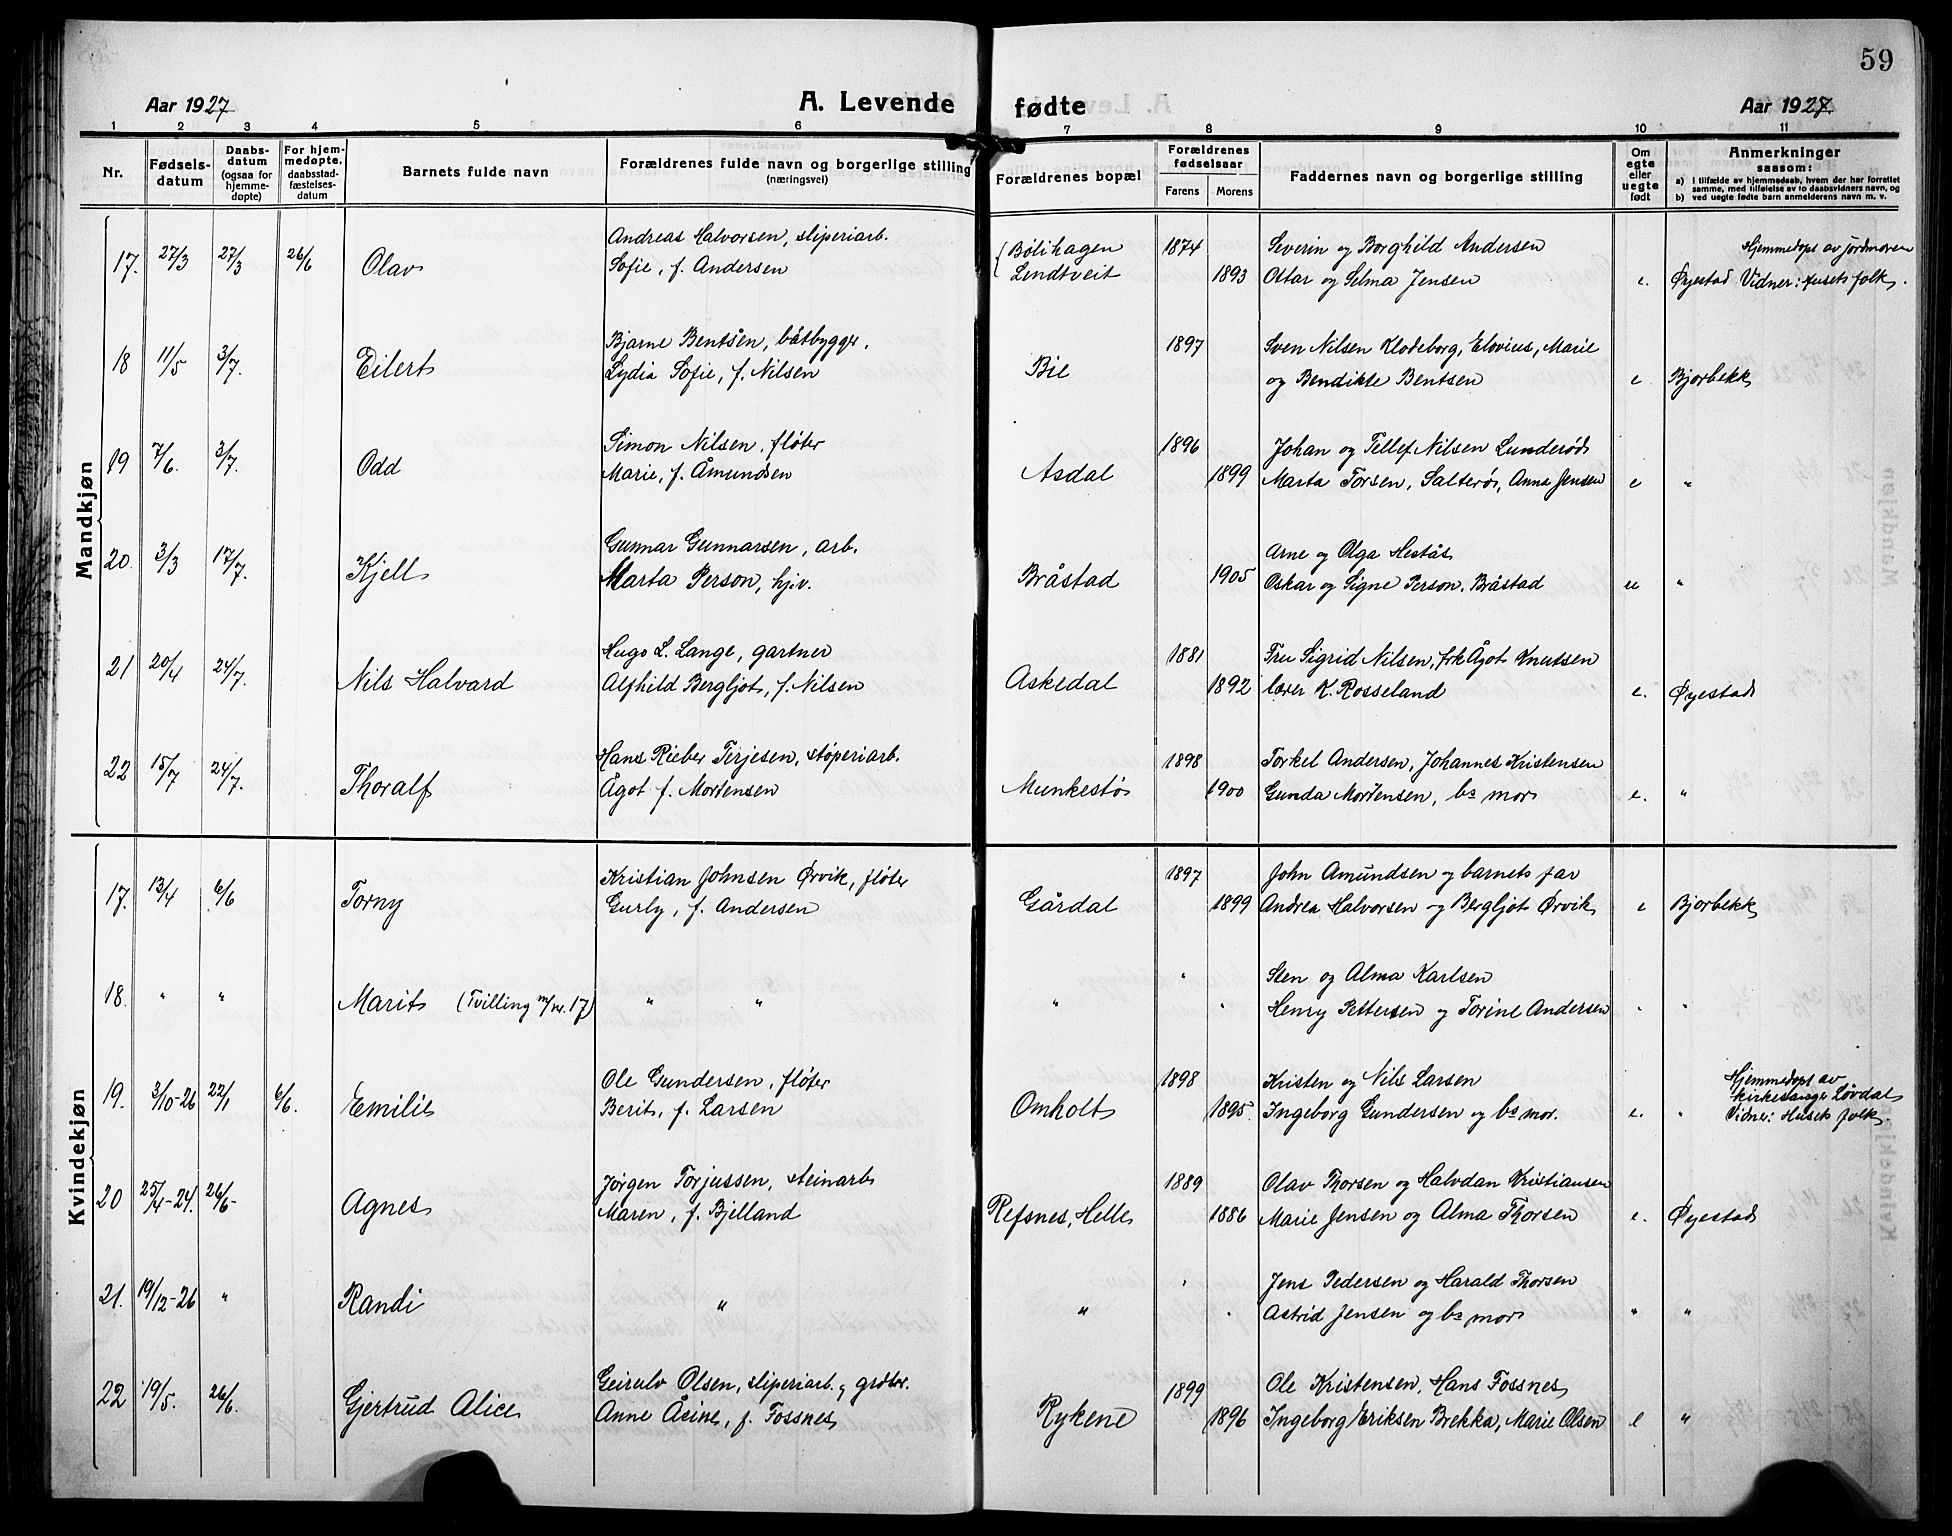 59
Aar 1927 A. Levende fødte Aar 1927.
1 2 3 4 5 6 7 8 9 10 11
Nr.
Fødsels-
datum
Daabs-
datum
(ogsaa for
hjemme-
døpte)
For hjem-
medøpte,
daabsstad-
fæstelses-
datum
Barnets fulde navn
Forældrenes fulde navn og borgerlige stilling
(næringsvei)
Forældrenes bopæl
Forældrenes
fødselsaar
Farens Morens
Faddernes navn og borgerlige stilling
Om
egte
eller
uegte
født
Anmerkninger
saasom:
a) i tilfælde av hjemmedaab, hvem der har forrettet
samme, med tilføielse av to daabsvidners navn, og
b) ved uegte fødte barn anmelderens navn m. v.
Mandkjøn
Andreas Halvorsen, sliperiarb. Bølihagen 1874 Severin og Borghild Andersen Hjemmedøpt av jordmoren
17. 27/3 27/3 26/6 Olav Sofie, f. Andersen Lindtveit 1893 Ostar og Selma Jensen e. Øyestad Vidner: Husets folk.
Bjarne Bentsen, båtbygger. 1897 Sven Nilsen Klodeborg, Elovius, Marie
18 11/5 3/7. Eilert Lydia Sofie, f. Nilsen Bie og Bendikte Bentsen e Bjorbekk
Simon Nilsen, fløter 1896 Johan og Tellef Nilsen Lunderød
19 7/6. 3/7. Odd Marie, f. Åmundsen Asdal 1899 Marta Torsen, Salterø, Anna Jensen e "
Gunnar Gunnarsen, arb. Arne og Olga Hestås
20. 3/3 17/7. Kjell Marta Person, hjv. Bråstad 1905 Oskar og Signe Person, Bråstad ue "
Hugo L. Lange, gartner 1881 Fru Sigrid Nilsen, frk Ågot Knutsen
21 20/4 24/7. Nils Halvard Alfhild Bergljot, f. Nilsen Askedal 1892 lærer K. Rosseland e. Øyestad
Hans Rieber Terjesen, støperiarb. 1898 Torkel Andersen, Johannes Kristensen
22 15/7 24/7. Thoralf Ågot f. Mortensen Munkestø 1900 Gunda Mortensen, bs mor e. "
Kvindekjøn
Kristian Johnsen Ørvik, fløter 1897 John Amundsen og barnets far
17. 13/4 6/6 Torny Gurly, f. Andersen Gårdal 1899 Andrea Halvorsen og Bergljot Ørvik e Bjorbekk
" Sten og Alma Karlsen
18. " " Marit (Tvilling m/nr. 17) " " " " Henry Pettersen og Torine Andersen " "
Ole Gundersen, fløter 1898 Kristen og Nils Larsen Hjemmedøpt av
19. 3/10-26 22/1 6/6. Emilie Berit, f. Larsen Omholt 1895. Ingeborg Gundersen og bs mor. e. " kirkesanger Løvdal
Vidner: Husets folk.
Jørgen Torjussen, steinarb 1889 Olav Thorsen og Halvdan Kristiansen
20 25/4-24. 26/6- Agnes Maren, f. Bjelland Refsnes, Helle 1886 Marie Jensen og Alma Thorsen e. Øyestad
" Jens Pedersen og Harald Thorsen
21. 19/12-26 " Randi " " " Astrid Jensen og bs mor " "
Geirulv Olsen, sliperiarb. 1899 Ole Kristensen, Hans Fossnes
22 19/5. 26/6. Gjertrud Alice Anne Åsine, f. Fossnes Rykene 1896 Ingeborg Eriksen Brekka, Marie Olsen e "